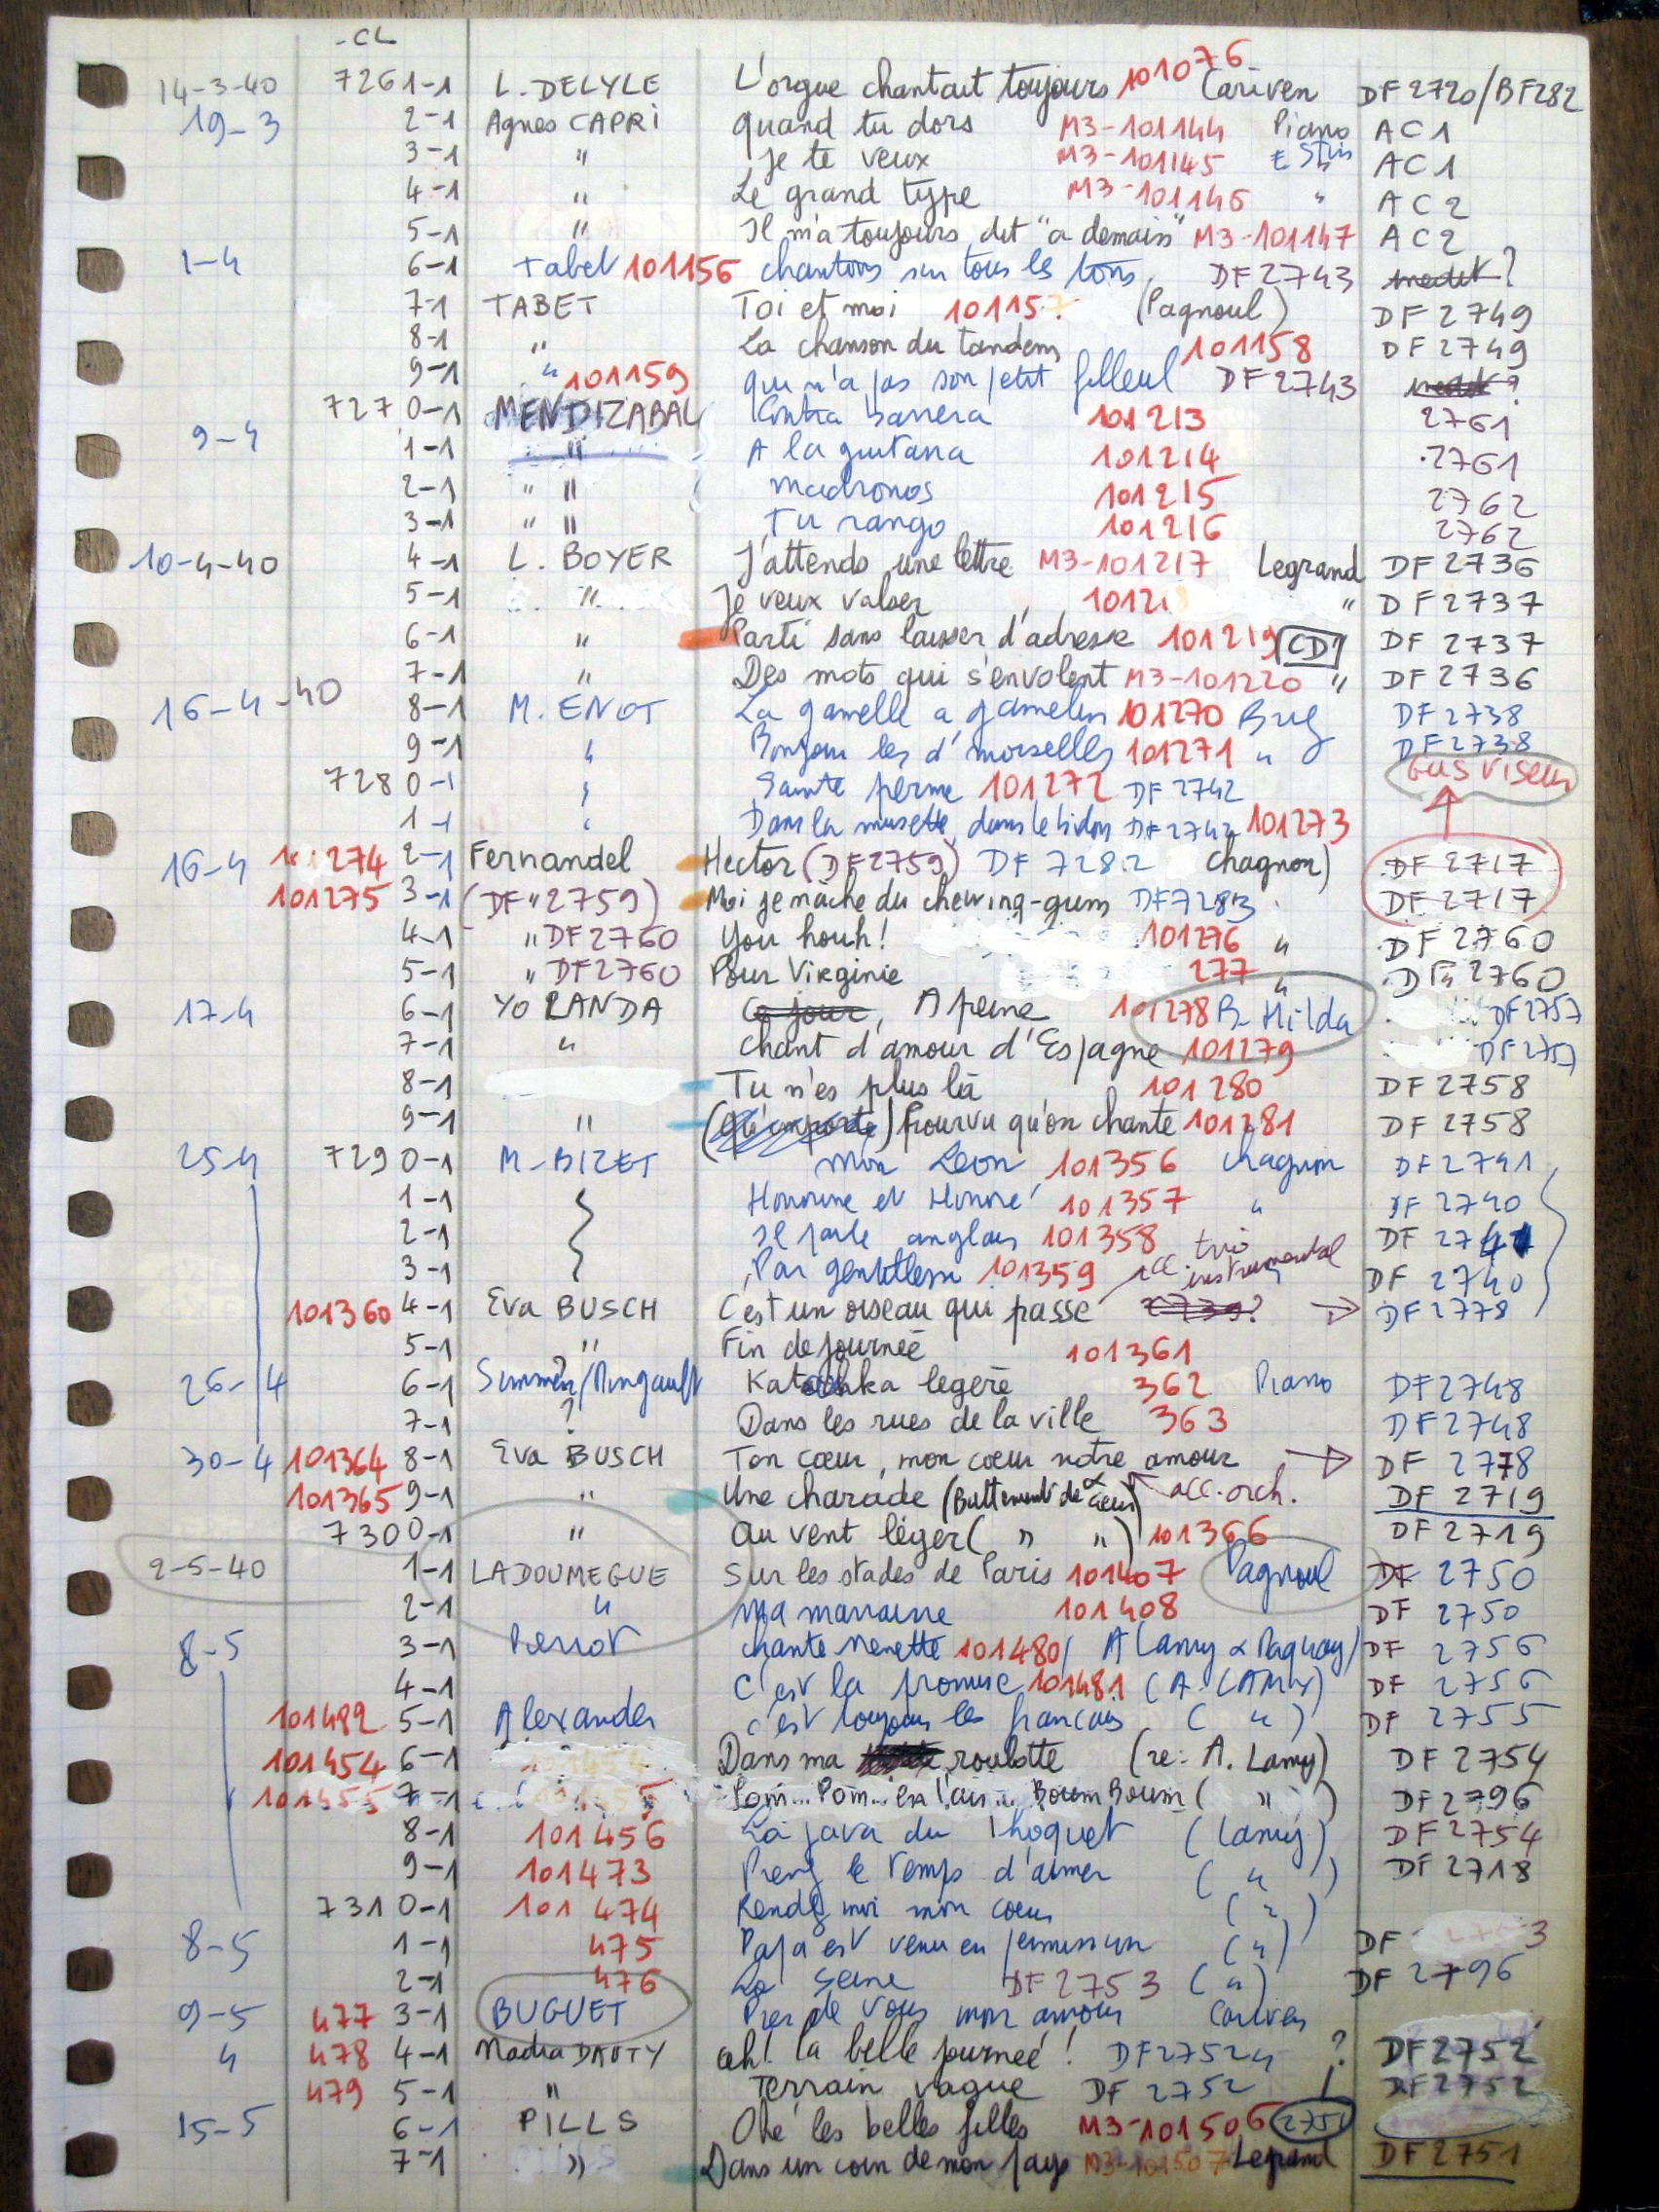 -CL
14-3-40 7261-1 L. DELYLE L'orgue chantait toujours 101076 Cariven DF2720/BF282
19-3 2-1 Agnes CAPRI Quand tu dors M3-101144 Piano AC1
3-1 " Je te veux M3-101145 AC1
4-1 " Le grand type M3-101146 " AC2
5-1 " Il m'a toujours dit "a demain" M3-101147 AC2
1-4 6-1 Tabet 101156 chantons sur tous les tons DF2743 inedit?
7-1 TABET Toi et moi 10115 (Pagnoul) DF2749
8-1 " La chanson du tandem 101158 DF2749
9-1 " 101159 qui n'a pas son petit filleul DF2743 inedit?
7270-1 MENDIZABAL Contra barrera 101213 2761
9-4 1-1 " A la guitana 101214 2761
2-1 " " madronos 101215 2762
3-1 " " Tu rango 101216 2762
10-4-40 4-1 L. BOYER J'attends une lettre M3-101217 Legrand DF2736
5-1 " Je veux valser 10121 " DF2737
6-1 " Parti sans laisser d'adresse 101219 CD? DF2737
7-1 " Des mots qui s'envolent M3-101220 " DF2736
16-4-40 8-1 M. ENOT La gamelle a gamelin 101270 DF2738
9-1 " Bonjour les d'moiselles 101271 " DF2738
Gus Viseur
7280-1 " Sainte perme 101272 DF2742
1-1 " Dans la musette, dans le bidon DF2742 101273
16-4 274 2-1 Fernandel Hector (DF2759) DF7282 Chagnon) DF2717
101275 3-1 (DF"2759) Moi je mâche du chewing-gum DF7283 DF2717
4-1 " DF2760 You houh! 101276 " DF2760
5-1 " DF2760 Pour Virginie 277 " DF 2760
17-4 6-1 YOLANDA Ce jour, A peine 101278 B. Hilda DF2757
7-1 " chant d'amour d'Espagne 101279 DF2757
8-1 Tu n'es plus là 101280 DF2758
9-1 " (Qu'importe) Pourvu qu'on chante 101281 DF2758
25-4 7290-1 M-BIZET Mon Leon 101356 Chagnon DF2741
1-1 Honorine et Honoré 101357 " DF2740
2-1 Il parle anglais 101358 DF 274
3-1 Par gentillesse 101359 acc. trio instrumental DF 2740
101360 4-1 Eva BUSCH C'est un oiseau qui passe 2739? DF2778
5-1 " Fin de journée 101361
26-4 6-1 légère 362 Piano DF2748
7-1 ? Dans les rues de la ville 363 DF2748
30-4 101364 8-1 Eva BUSCH Ton cœur, mon cœur notre amour DF 2778
101365 9-1 " Une charade (Battement de cœur) acc. orch. DF 2719
7300-1 " Au vent léger ( " " ) 101366 DF2719
2-5-40 1-1 LADOUMEGUE Sur les stades de Paris 101407 Pagnoul DF 2750
2-1 " Ma marraine 101408 DF 2750
8-5 3-1 Pierrot chante Nenette 101480 / A Lamy & DF 2756
4-1 C'est la promise 101481 (A. LAMY) DF 2756
101482 5-1 Alexander C'est toujours les francais ( " ) DF 2755
101454 6-1 Dans ma roulotte (re: A. Lamy) DF 2754
101455 7-1 Pom... Pom... en l'air... Boum Boum ( " ) DF2796
8-1 101456 La java du hoquet (Lamy) DF2754
9-1 101473 Prenez le temps d'aimer ( " ) DF2718
7310-1 101474 Rendez moi mon coeur ( " )
8-5 1-1 475 Papa est venu en permission ( " ) DF 3
2-1 476 La Seine DF2753 ( " ) DF 2796
9-5 477 3-1 BUGUET Pres de vous mon amour Cariven
" 478 4-1 Nadia DAUTY Ah! la belle journée! DF2752 ? DF2752
479 5-1 " Terrain vague DF 2752 DF2752
15-5 6-1 PILLS Ohé les belles filles M3-101506 2751
7-1 " Dans un coin de mon pays M3-101507 Legrand DF2751